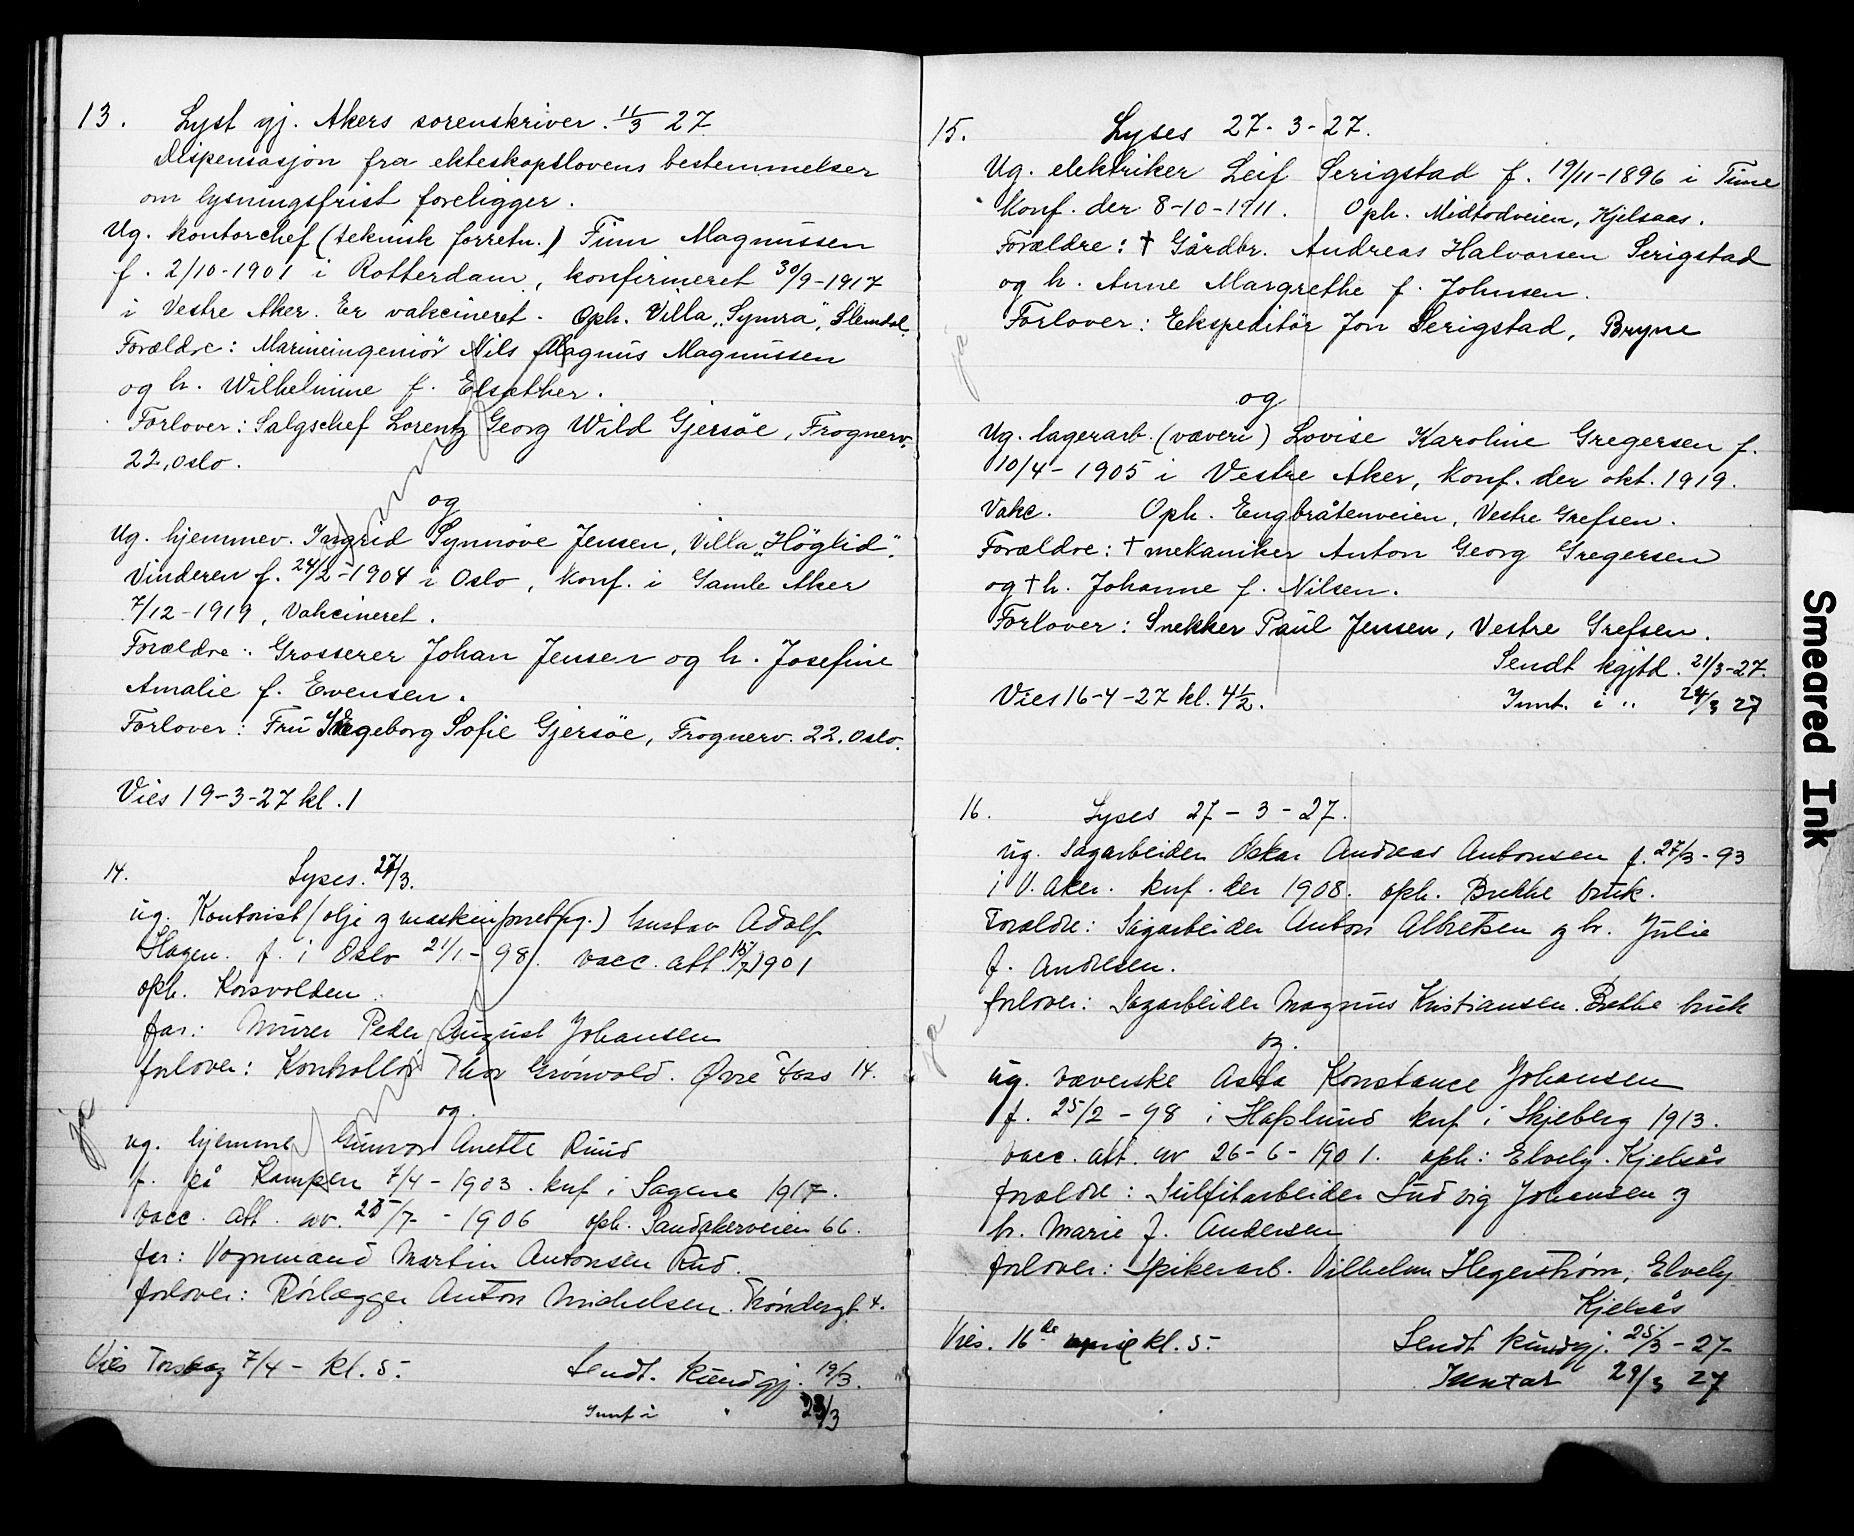 13. Lyst gj. Akers sorenskriver. 11/3 27
Dispensasjon fra ekteskapslovens bestemmelser
om lysningsfrist foreligger.
Ug. kontorchef (teknisk forretn.) Finn Magnussen
f. 2/10-1901 i Rotterdam, konfirmeret 30/9-1917
i Vestre Aker. Er vakcineret. Oph. Villa „Symra", Slemdal.
Forældre: Marineingeniør Nils Magnus Magnussen
og h. Wilhelmine f. Elsæther.
Forlover: Salgschef Lorentz Georg Wild Gjersøe, Frognerv.
22, Oslo.
og
Ug. hjemmev. Ingrid Synnøve Jensen, Villa „Höglid",
Vinderen f. 24/2-1904 i Oslo, konf. i Gamle Aker
7/12-1919, Vakcineret.
Forældre: Grosserer Johan Jensen og h. Josefine
Amalie f. Evensen.
Forlover: Fru Ingeborg Sofie Gjersøe, Frognerv. 22. Oslo.
Vies 19-3-27 kl. 1
14. Lyses. 27/3.
ug. Kontorist (olje g maskinforretng.) Gustav Adolf
Hagen. f. i Oslo 21/1-98. vacc. att. 15/7 1901
oph. Korsvolden.
far: Murer Peder August Johansen
forlover: Kontrollør Thor Grönvold. Øvre Foss 14.
og.
ja
ug. hjemme Gunvor Anette Ruud
f. på Kampen 7/4-1903. knf i Sagene 1917.
vacc. att. av. 25/7-1906 oph. Sandakerveien 66.
far: Vognmand Martin Antonsen Rud.
forlover: Rørlægger Anton Michelsen. Trøndergt 4.
Vies Torsdag 7/4 - kl. 5.
Sendt. kundgj. 19/3.
Innt i " 23/3
15. Lyses 27-3-27.
Ug. elektriker Leif Serigstad f. 19/11-1896 i Time
Konf. der 8-10-1911. Oph. Midtodveien, Kjelsaas.
Forældre: † Gårdbr. Andreas Halvorsen Serigstad
og h. Anne Margrethe f. Johnsen.
Forlover: Ekspeditør Jon Serigstad, Bryne
ja
og
Ug. lagerarb. (væveri) Lovise Karoline Gregersen f.
10/4-1905 i Vestre Aker, konf. der okt. 1919.
Vakc. Oph. Engbråtenveien, Vestre Grefsen.
Forældre: † mekaniker Anton Georg Gregersen
og † h. Johanne f. Nilsen.
Forlover: Snekker Paul Jensen, Vestre Grefsen.
Sendt kgjtd. 21/3-27.
Vies 16-4-27 kl. 4½.
Innt. i " 24/3 27
16. Lyses 27-3-27.
ug. Sagarbeider Oskar Andreas Antonsen f. 27/3-93
i V. Aker. knf. der 1908. oph. Brekke bruk.
Forældre: Sagarbeider Anton Albretsen g h. Julie
f. Andresen.
forlover: Sagarbeider Magnus Kristiansen. Brekke bruk
ja
og.
ug. væverske Asta Konstance Johansen
f. 25/2-98 i Hafslund knf i Skjeberg 1913.
vacc. att. av 26-6-1901. oph: Elvely. Kjelsås
forældre: Sulfitarbeider Ludvig Johansen g
h. Marie f. Andersen
forlover: Spikerarb. Vilhelm Hegerstrøm, Elvely
Kjelsås
Vies. 16de april kl. 5.
Sendt kundgj. 25/3-27-
Inntat 29/3 27
Smeared Ink